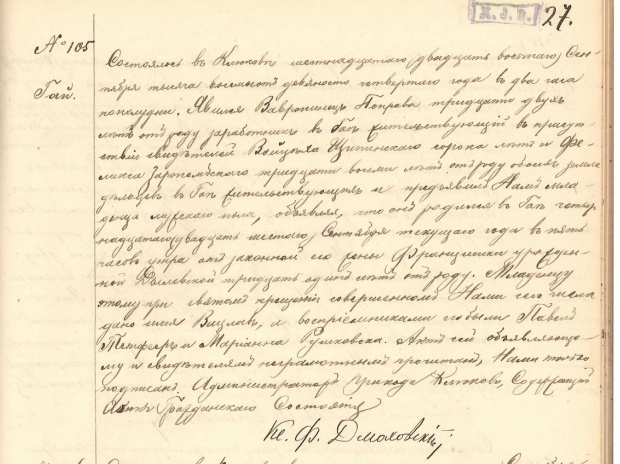 X. J. D. 27.
№ 105
Гай.
Состоялось въ Клюковѣ шестнадцатаго (двадцать восьмаго) Сен-
тября тысяча восемьсотъ девяносто четвертаго года въ два часа
пополудни. Явился Вавржинецъ тридцати двухъ
лѣтъ отъ роду заработникъ въ Гаѣ жительствующій въ присут-
ствіи свидѣтелей Войцѣха сорока лѣтъ и Фе-
ликса тридцати восьми лѣтъ отъ роду обоихъ земле-
дѣльцевъ въ Гаѣ жительствующихъ и предъявилъ Намъ мла-
денца мужескаго пола, объявляя, что онъ родился въ Гаѣ четыр-
надцатаго (двадцать шестого) Сентября текущаго года въ пять
часовъ утра отъ законной его жены Францишки урожден-
ной тридцать одинъ лѣтъ отъ роду. Младенцу
этому при святомъ крещеніи совершенномъ Нами сего числа
дано имя Вацлавъ, а воспріемниками его были Павелъ
и Маріанна Румковска. Актъ сей объявляюще-
му и свидѣтелямъ неграмотнымъ прочитанъ, Нами только
подписанъ. Администраторъ Прихода Клюково, Содержащій
Акты Гражданскаго Состоянія
Кс. Ф. Дмоховскій